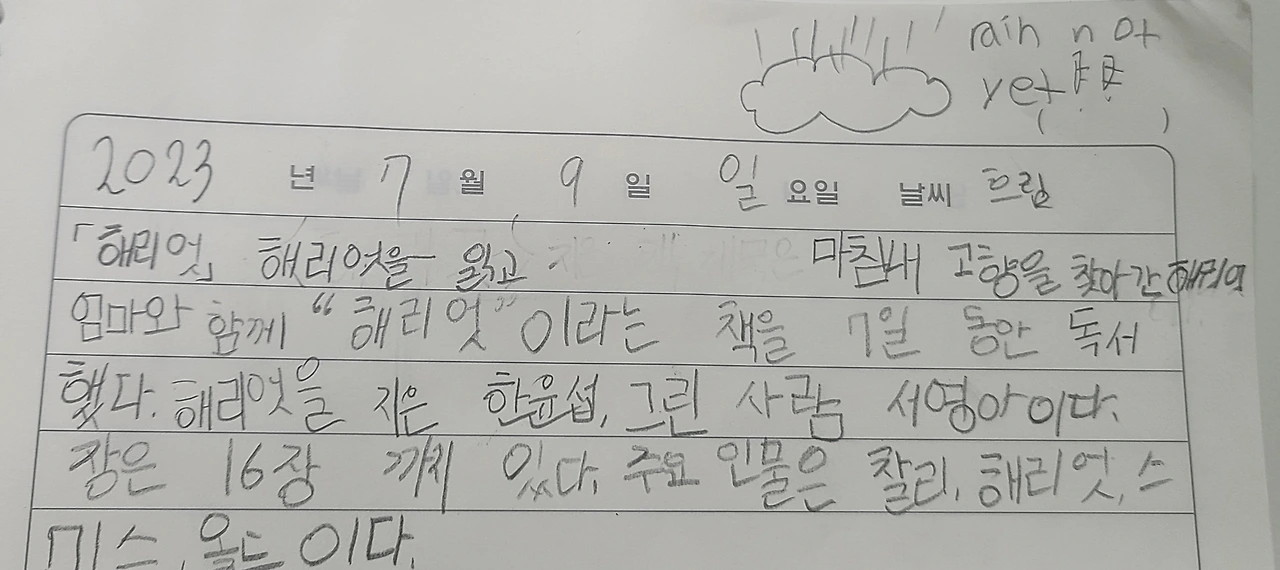 rain not
yet
(          )
2023 년 7 월 9 일 일 요일 날씨 흐림
「해리엇」 해리엇을 읽고 마침내 고향을 찾아간 해리엇
엄마와 함께 "해리엇"이라는 책을 7일 동안 독서
했다. 해리엇을 지은 한윤섭, 그린 사람 서영아이다.
장은 16장 까지 있다. 주요 인물은 찰리, 해리엇, 스
미스, 올드 이다.